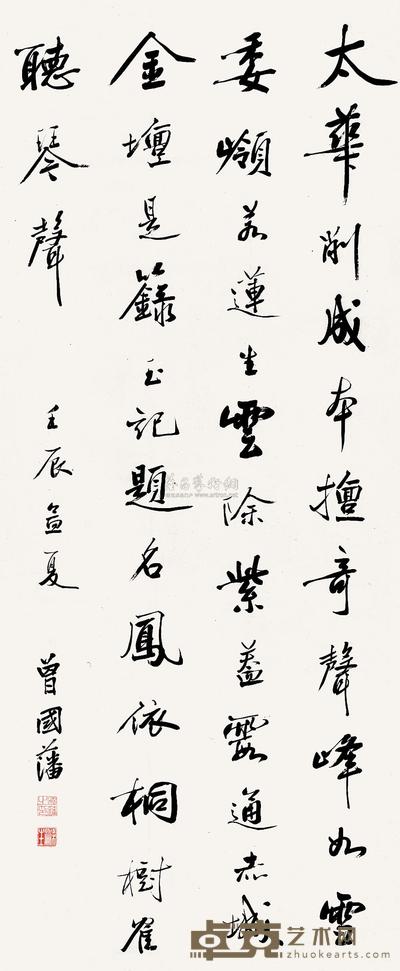 太華削成本擅奇聲峰如雲
委嶺若蓮生雲除紫蓋霞通赤城
金壇是籙玉記題名鳳依桐樹隺
聽琴聲
壬辰孟夏
曾國藩
卓克艺术网
zhuokearts.com